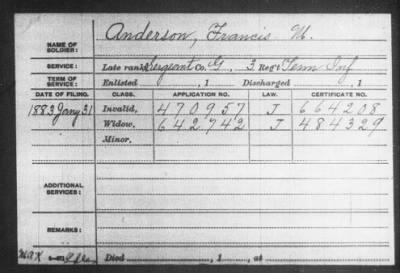 NAME OF SOLDIER: Anderson, Francis M.
SERVICE: Late rank Sergeant Co. G, 3 Reg't Tenn Inf
TERM OF SERVICE: Enlisted , 1 Discharged , 1
DATE OF FILING. CLASS. APPLICATION NO. LAW. CERTIFICATE NO.
1883 Jany 31 Invalid, 470957 J 664208
Widow, 642742 J 484329
Minor,
ADDITIONAL SERVICES:
REMARKS:
Died , 1 , at